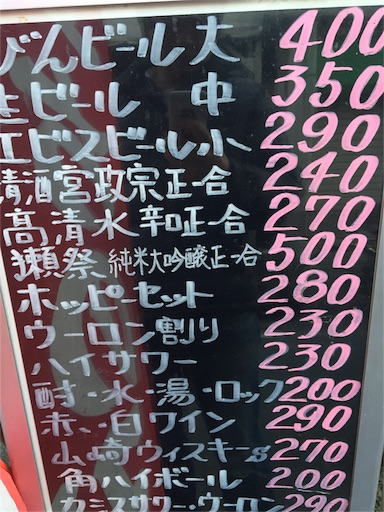 びんビール大 400
生ビール 中 350
エビスビール小 290
清酒宮政宗正一合 240
高清水辛和正一合 270
獺祭純米大吟醸正一合 500
ホッピーセット 280
ウーロン割り 230
ハイサワー 230
酎・水・湯・ロック 200
赤・白ワイン 290
山崎ウィスキーs 270
角ハイボール 200
カシスサワー・ウーロン 290